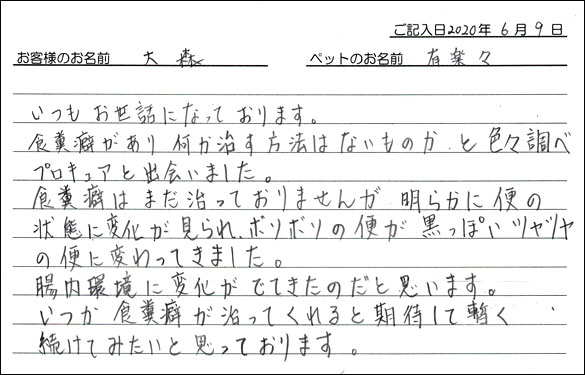 ご記入日2020年 6月 9日
お客様のお名前 大森 ペットのお名前 有楽々
いつもお世話になっております。
食糞癖があり 何か治す方法はないものか と色々調べ
プロキュアと出会いました。
食糞癖はまだ治っておりませんが 明らかに便の
状態に変化が見られ、ボソボソの便が黒っぽいツヤツヤ
の便に変わってきました。
腸内環境に変化がでてきたのだと思います。
いつか食糞癖が治ってくれると期待して暫く
続けてみたいと思っております。